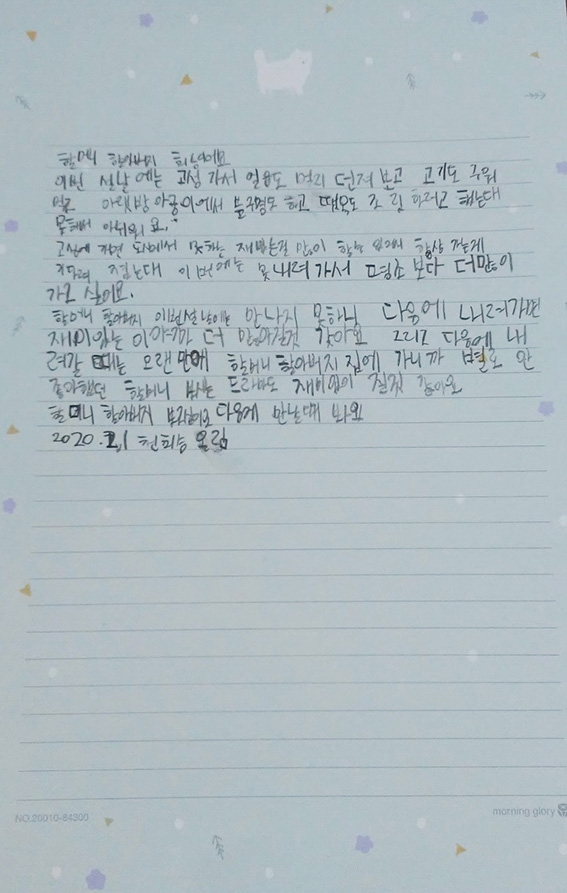 할머니 할아버지 희승이에요
이번 설날에는 고성 가서 얼음도 멀리 던져 보고 고기도 구워
먹고 아랫방 아궁이에서 불구경도 하고 하려고 했는대
못해서 아쉬워요.
고성에 가면 못하는 재밌는걸 많이 할수 있어서 항상 가는게
이번에는 못내려 가서 평소 보다 더많이
가고 싶어요.
할머니 할아버지 이번설날에는 만나지 못하니 다음에 내려가면
재미있는 이야기가 더 많아질것 같아요 그리고 다음에 내
려갈 때는 오랜만에 할머니 할아버지 집에 가니까 별로 안
좋아했던 할머니 보시는 드라마도 재미있어 질것 같아요
할머니 할아버지 보고싶어요 다음에 만날때 봐요
2020. 2.1 천희승 올림
NO.20010-84300
morning glory